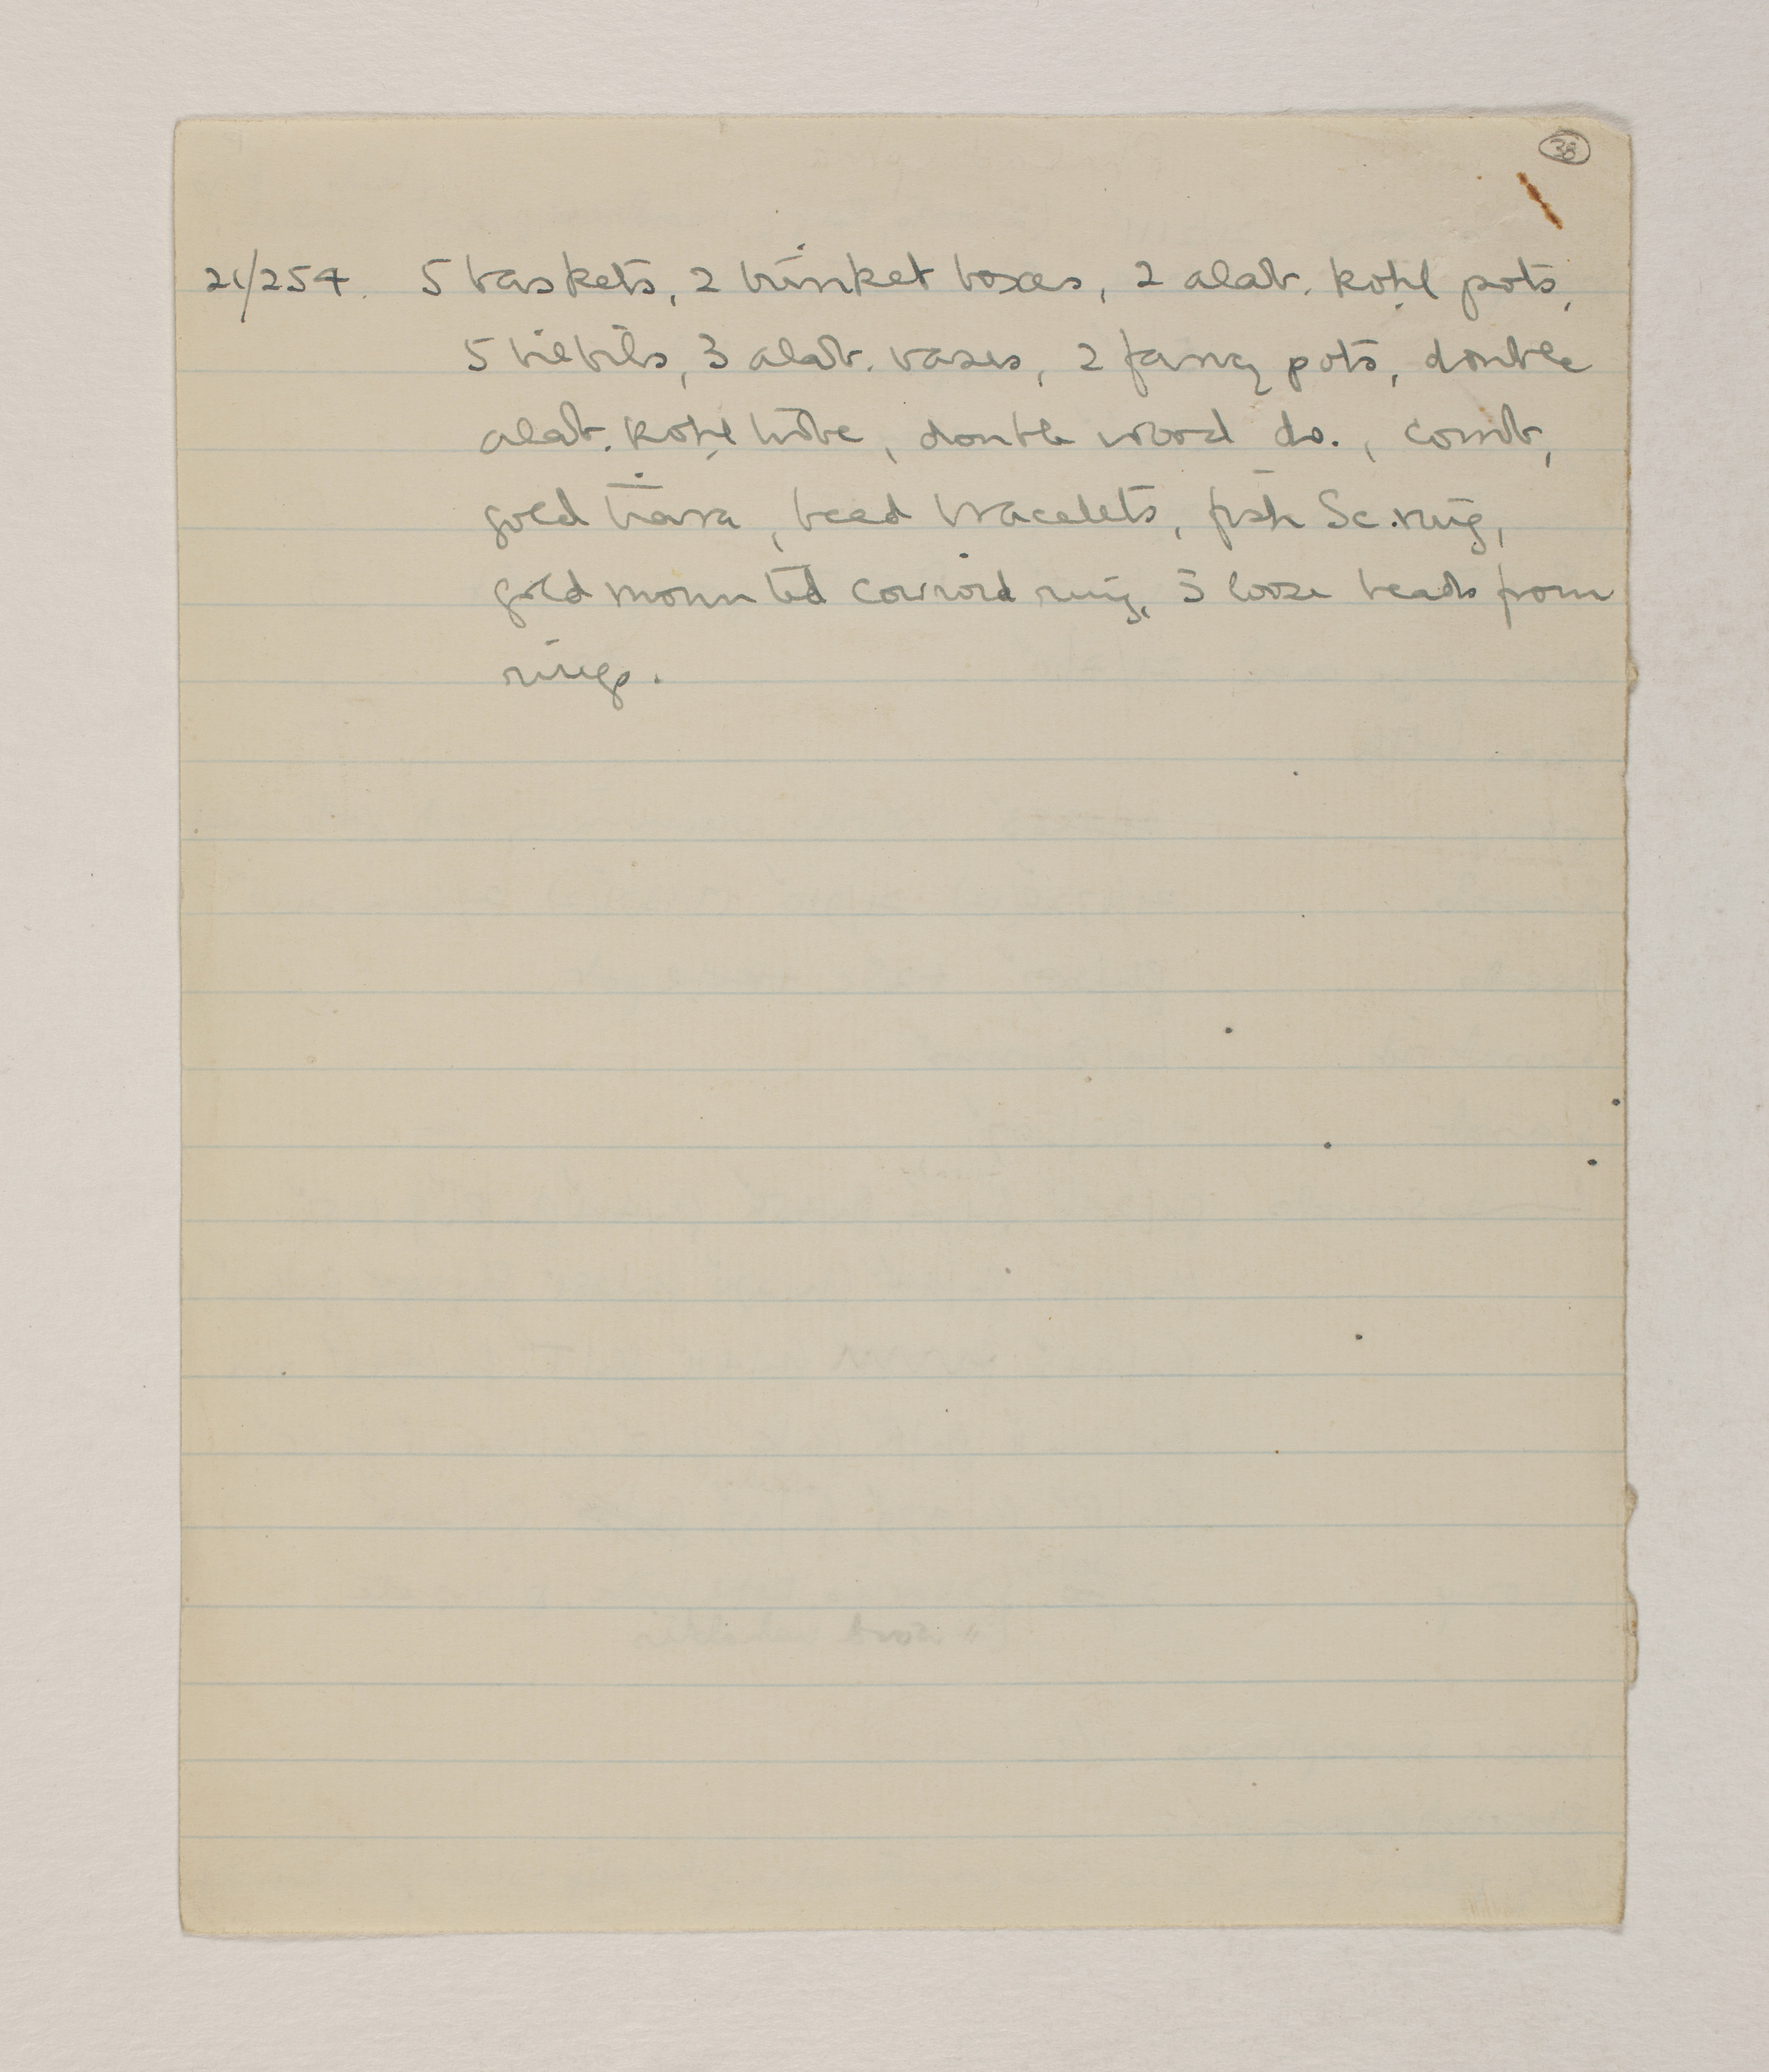 38
21/254. 5 baskets, 2 trinket boxes, 2 alab. kohl pots,
5 bilbils, 3 alab. vases, 2 fancy pots, double
alab. kohl tube, double wood do., comb,
gold tiara, bead bracelets, fish Sc. ring,
gold mounted cowroid ring, 3 loose beads from
rings.